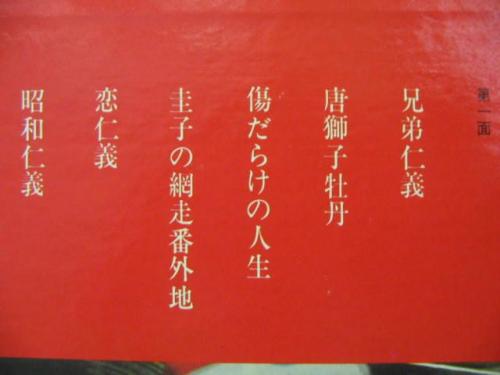 第一面
兄弟仁義
唐獅子牡丹
傷だらけの人生
圭子の網走番外地
恋仁義
昭和仁義